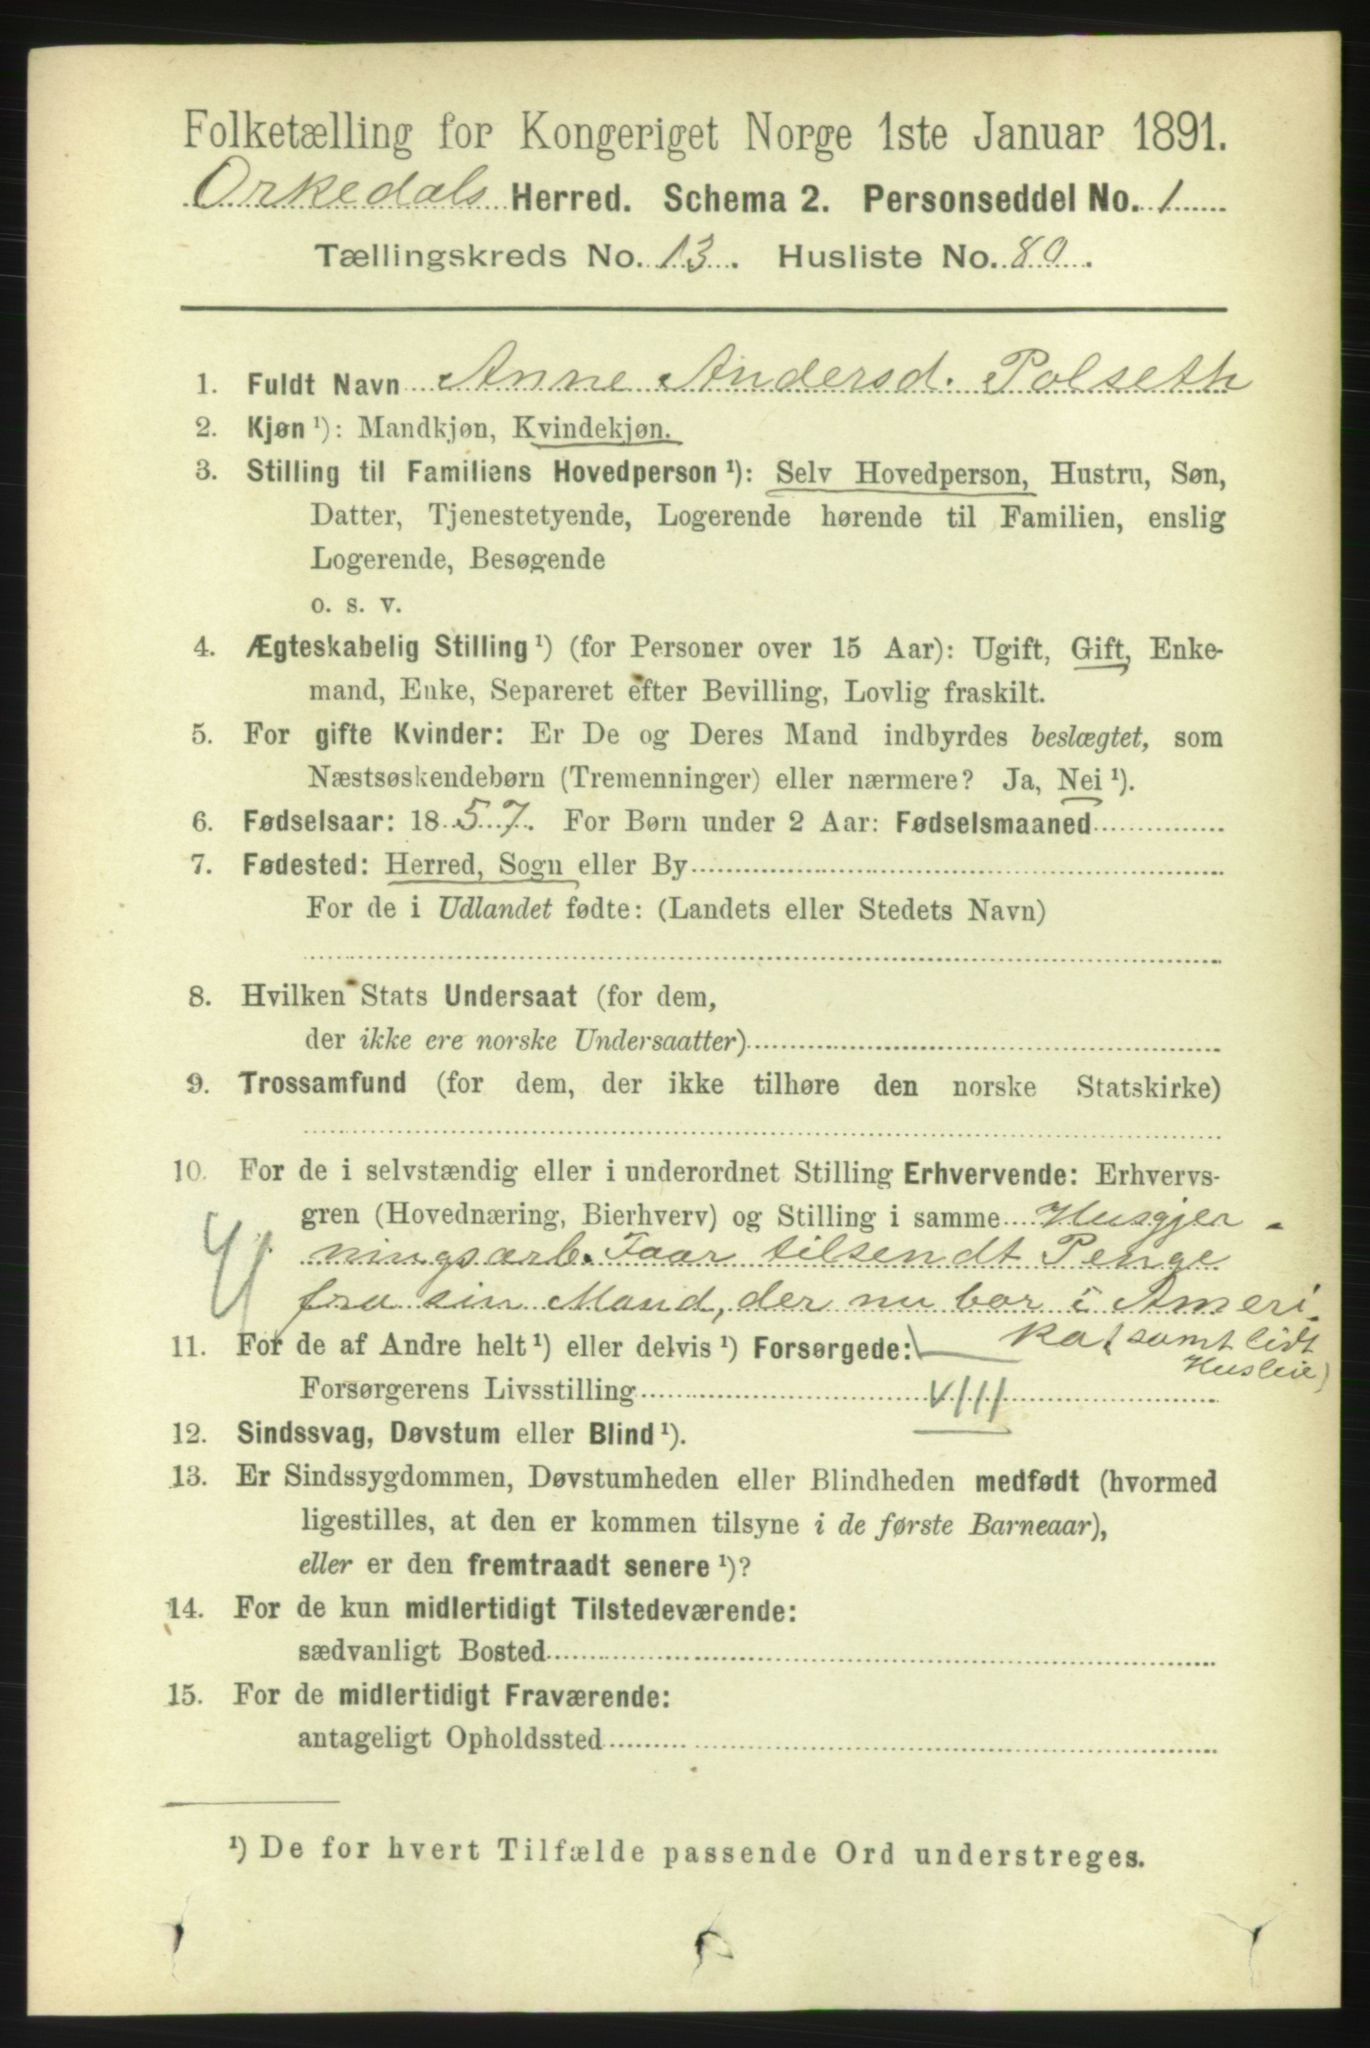 Folketælling for Kongeriget Norge 1ste Januar 1891.
Orkedals Herred. Schema 2. Personseddel No. 1
Tællingskreds No. 13. Husliste No. 80.
1. Fuldt Navn Anne Andersd. Polseth
2. Kjøn ¹): Mandkjøn, Kvindekjøn.
3. Stilling til Familiens Hovedperson ¹): Selv Hovedperson, Hustru, Søn,
Datter, Tjenestetyende, Logerende hørende til Familien, enslig
Logerende, Besøgende
o. s. v.
4. Ægteskabelig Stilling ¹) (for Personer over 15 Aar): Ugift, Gift, Enke-
mand, Enke, Separeret efter Bevilling, Lovlig fraskilt.
5. For gifte Kvinder: Er De og Deres Mand indbyrdes beslægtet, som
Næstsøskendebørn (Tremenninger) eller nærmere? Ja, Nei ¹).
6. Fødselsaar: 1857. For Børn under 2 Aar: Fødselsmaaned
7. Fødested: Herred, Sogn eller By
For de i Udlandet fødte: (Landets eller Stedets Navn)
8. Hvilken Stats Undersaat (for dem,
der ikke ere norske Undersaatter)
9. Trossamfund (for dem, der ikke tilhøre den norske Statskirke)
10. For de i selvstændig eller i underordnet Stilling Erhvervende: Erhvervs-
gren (Hovednæring, Bierhverv) og Stilling i samme Husgjer-
ningsarb. Faar tilsendt Penge
fra sin Mand, der nu bor i Ameri-
ka (samt lidt
Husleie)
11. For de af Andre helt ¹) eller delvis ¹) Forsørgede:
Forsørgerens Livsstilling VIII
12. Sindssvag, Døvstum eller Blind ¹).
13. Er Sindssygdommen, Døvstumheden eller Blindheden medfødt (hvormed
ligestilles, at den er kommen tilsyne i de første Barneaar),
eller er den fremtraadt senere ¹)?
14. For de kun midlertidigt Tilstedeværende:
sædvanligt Bosted
15. For de midlertidigt Fraværende:
antageligt Opholdssted
¹) De for hvert Tilfælde passende Ord understreges.